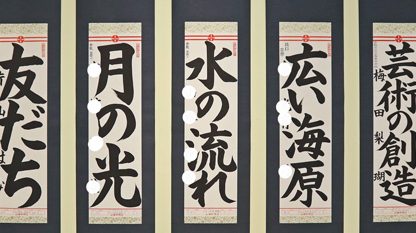 友だち
月の光
水の流れ
広い海原
芸術の創造
梅田梨瑚